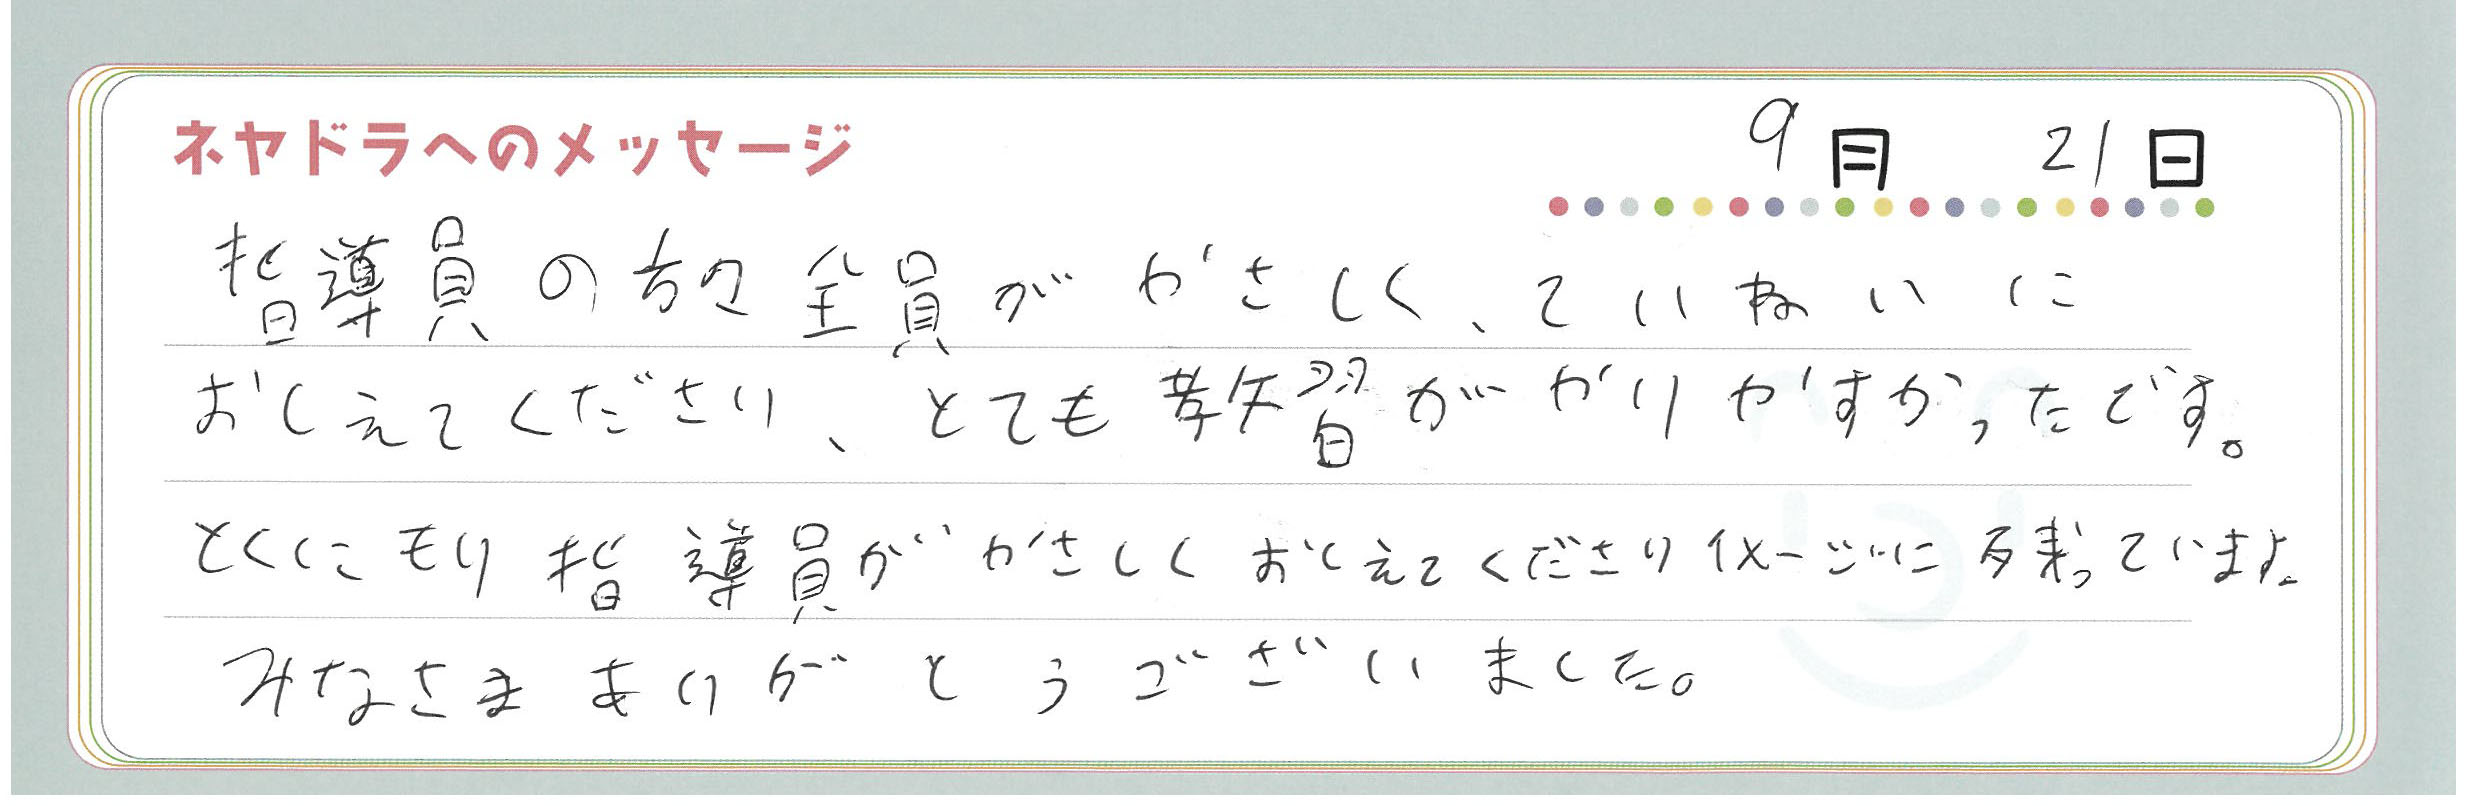 ネヤドラへのメッセージ
9月 21日
指導員の方々全員がやさしく、ていねいに
おしえてくださり、とても教習がやりやすかったです。
とくにもり指導員がやさしくおしえてくださりイメージに残っています。
みなさまありがとうございました。